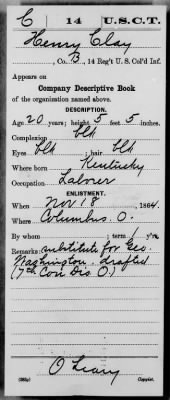 C | 14 | U.S.C.T.
Henry Clay
, Co. B, 14 Reg't U. S. Col'd Inf.
Appears on
Company Descriptive Book
of the organization named above.
DESCRIPTION.
Age 20 years; height 5 feet 5 inches.
Complexion blk
Eyes blk ; hair blk
Where born Kentucky
Occupation Laborer
ENLISTMENT.
When Nov 18 , 1864.
Where Columbus O.
By whom ; term 1 y'rs.
Remarks: Substitute for Geo.
Washington. drafted
(7th Con Dis. O.)
O'Leary
Copyist.